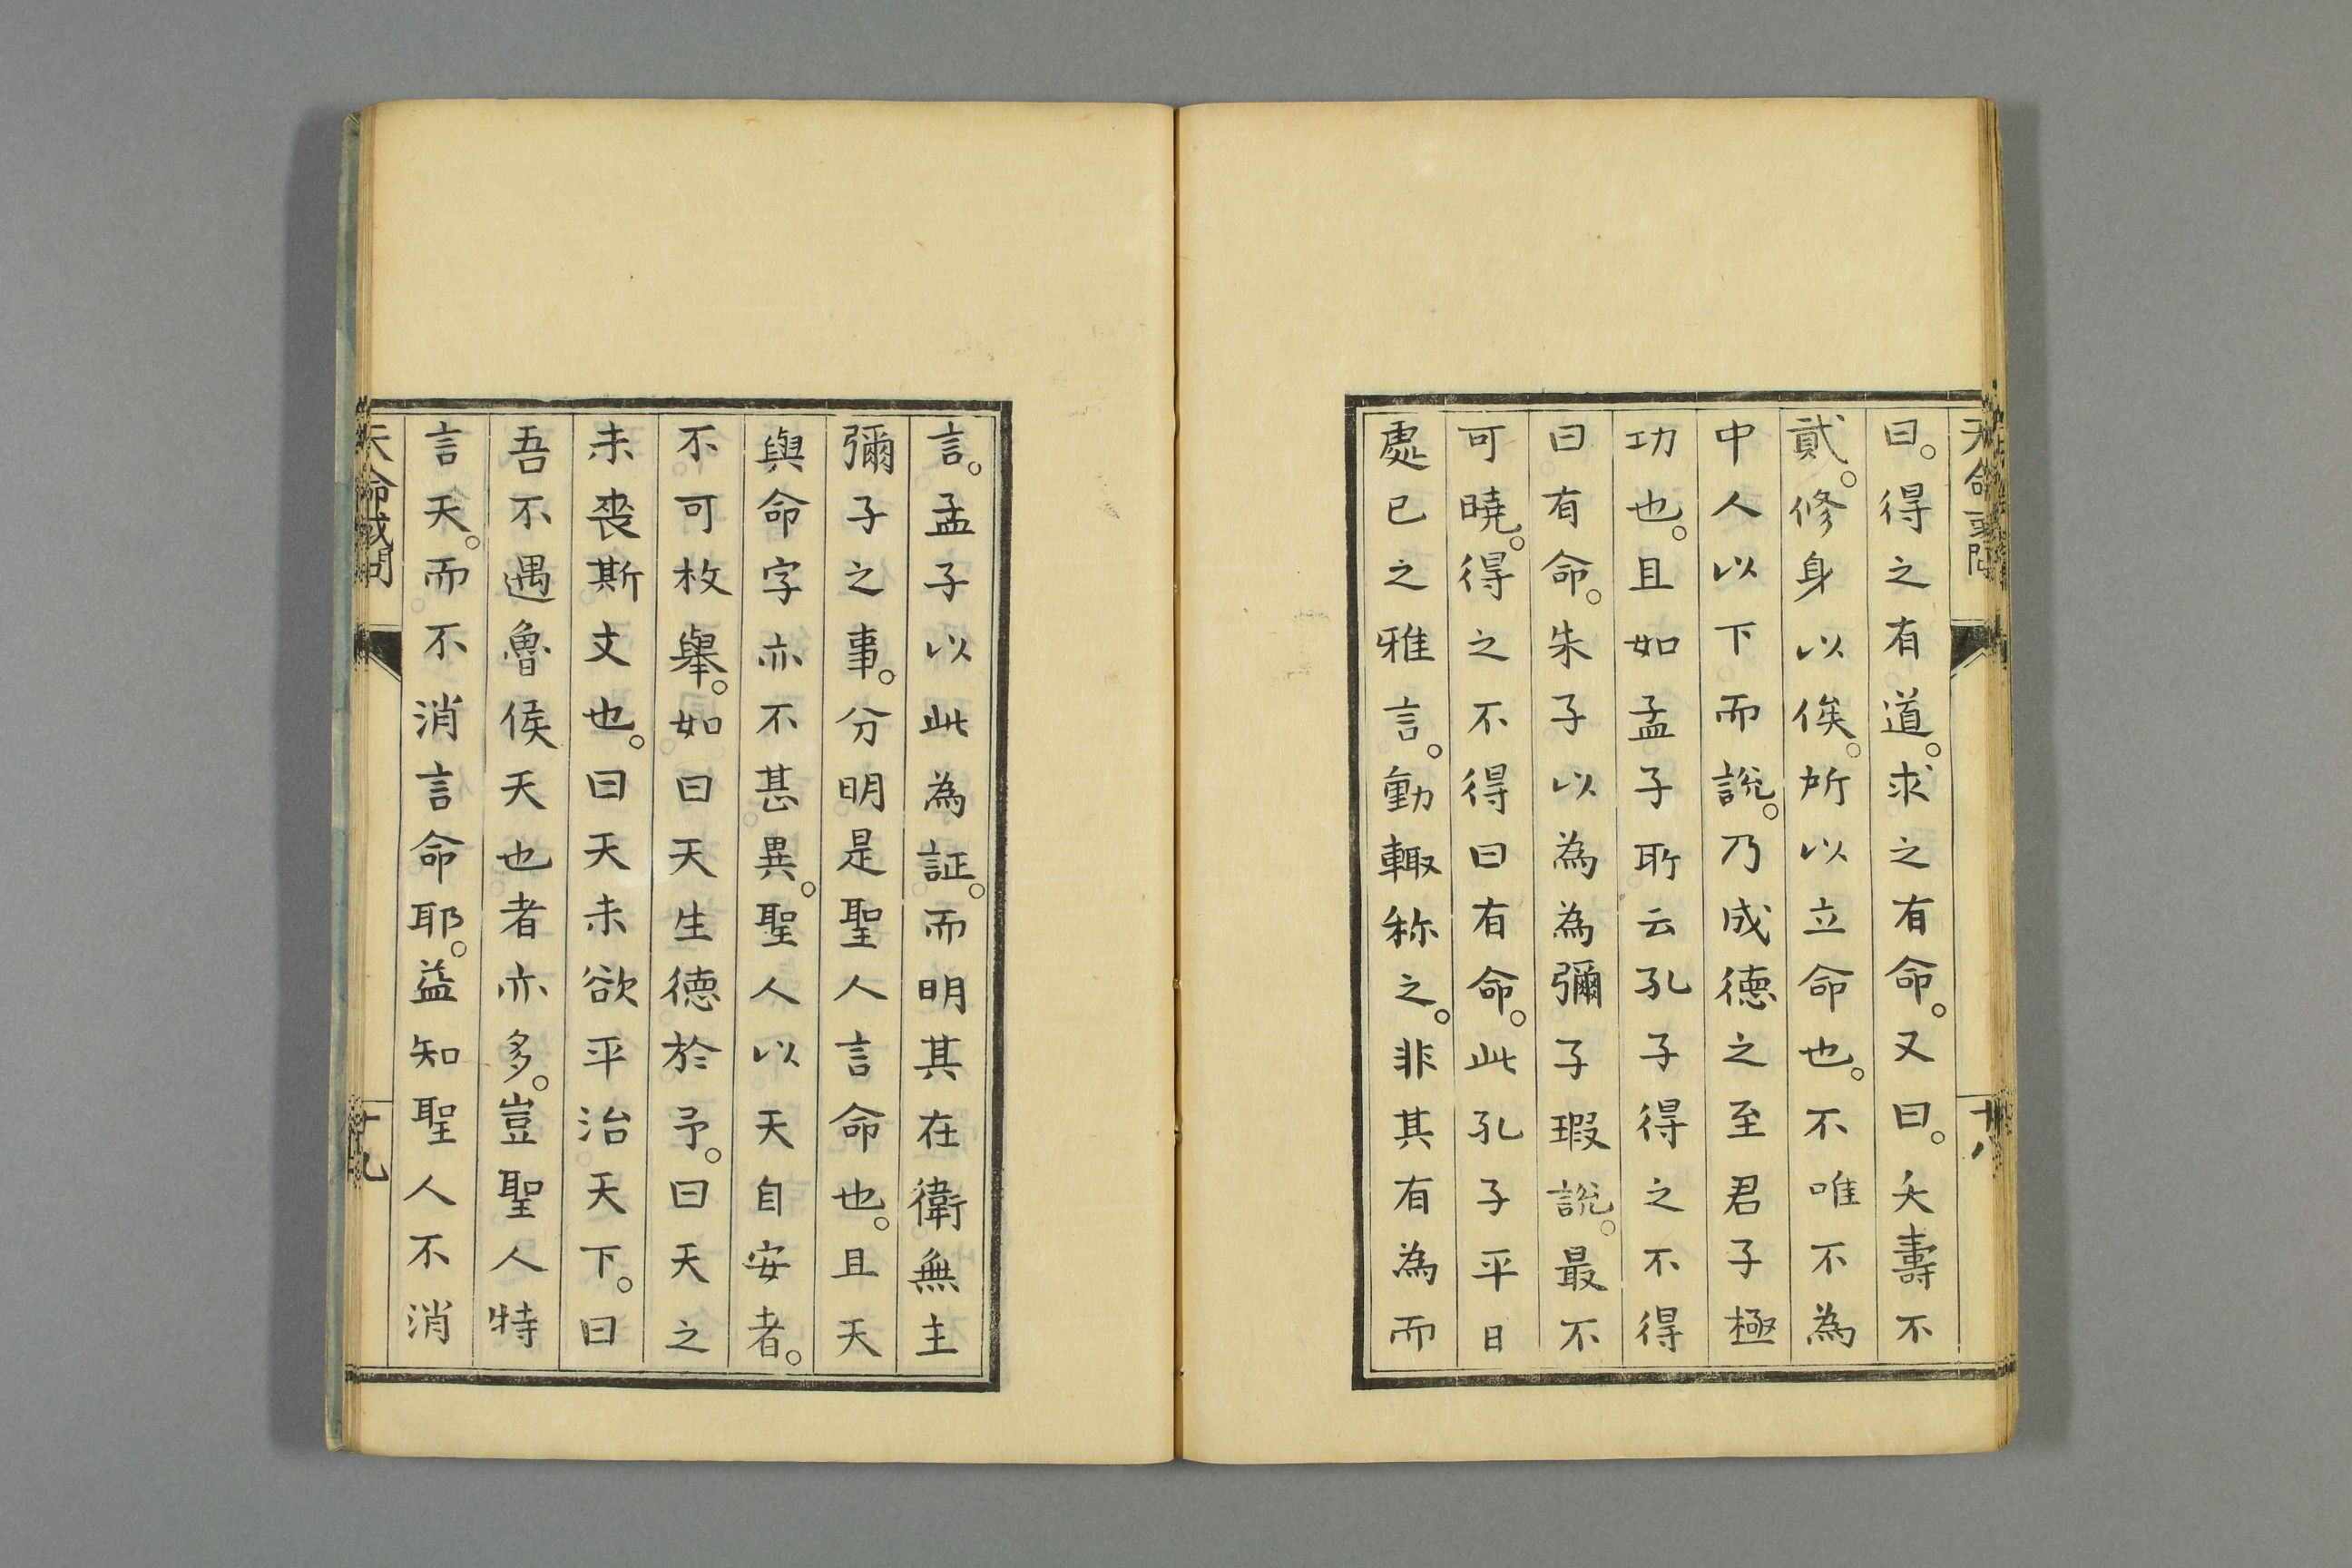 天命或問
十八
曰。得之有道。求之有命。又曰。夭壽不
貳。修身以俟。所以立命也。不唯不為
中人以下而說。乃成德之至君子極
功也。且如孟子所云孔子得之不得
曰有命。朱子以為為彌子瑕說。最不
可曉。得之不得曰有命。此孔子平日
處已之雅言。動輙称之。非其有為而
言。孟子以此為証。而明其在衛無主
彌子之事。分明是聖人言命也。且天
與命字亦不甚異。聖人以天自安者。
不可枚舉。如曰天生德於予。曰天之
未丧斯文也。曰天未欲平治天下。曰
吾不遇魯侯天也者亦多。豈聖人特
言天。而不消言命耶。益知聖人不消
天命或問
十九